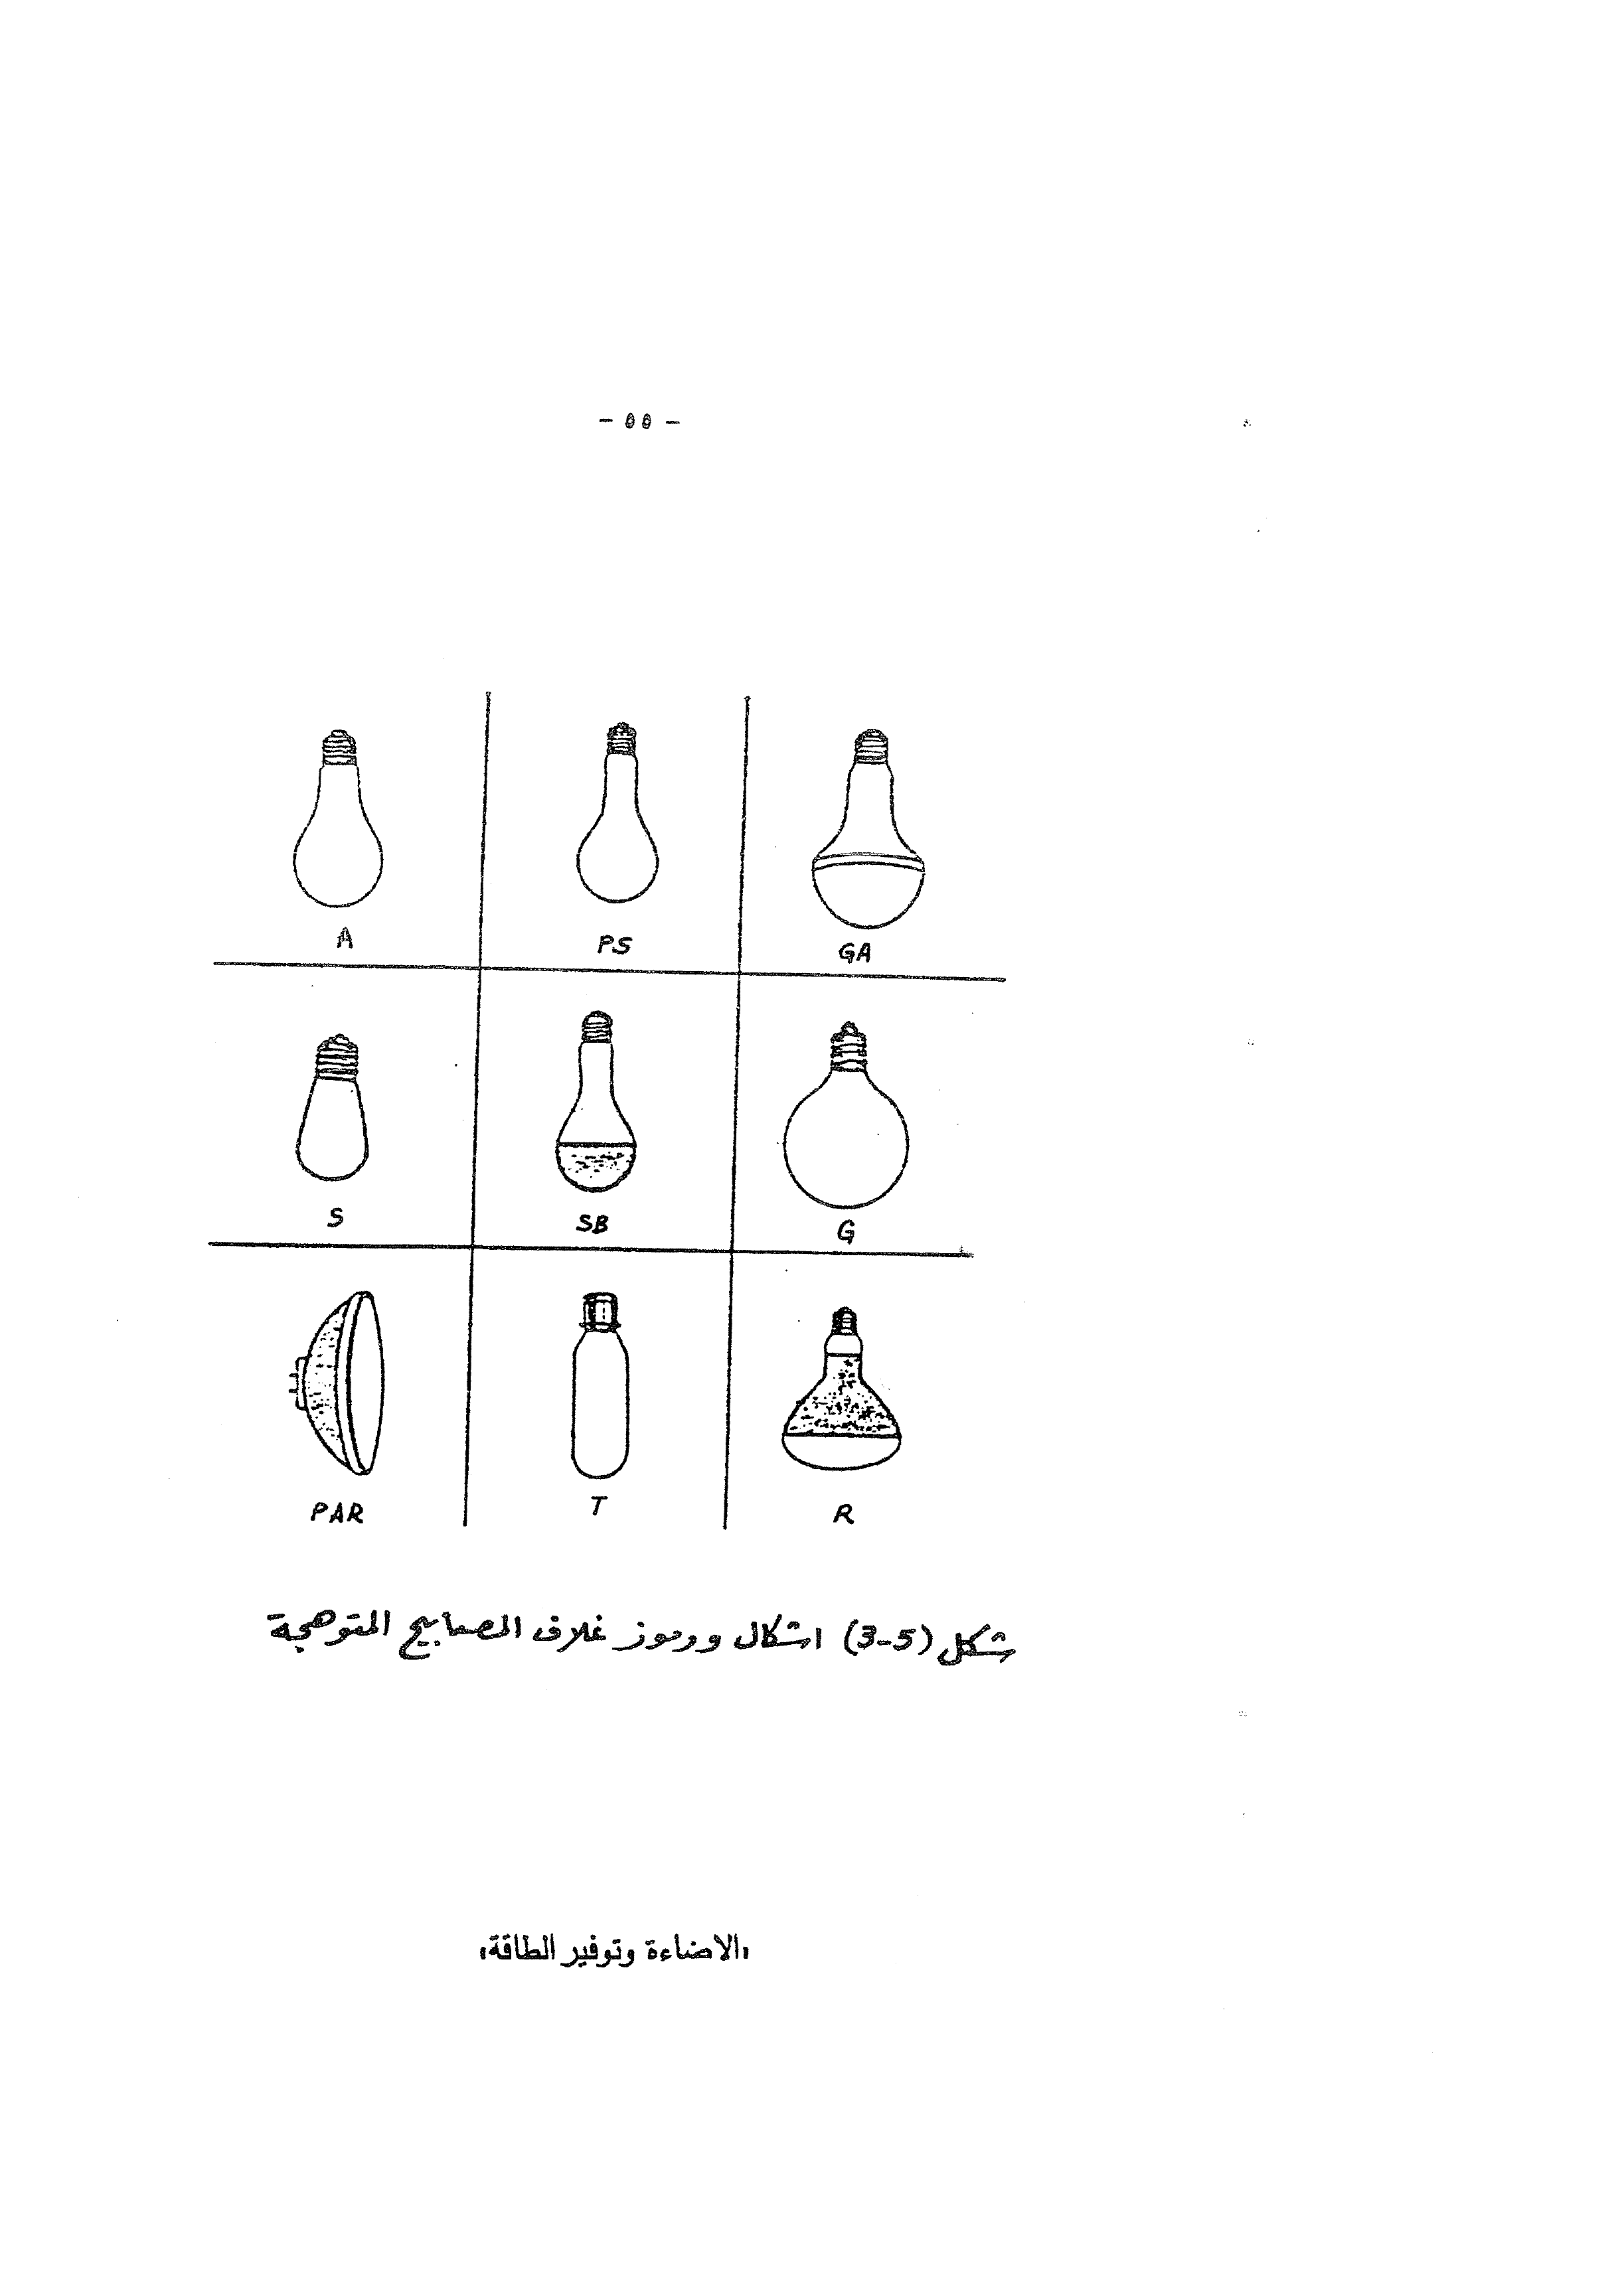 - ٥٥ -
A PS GA
S SB G
PAR T R
شكل (3-5) اشكال ورموز غلاف المصابيح المتوهجة
«الاضاءة وتوفير الطاقة»